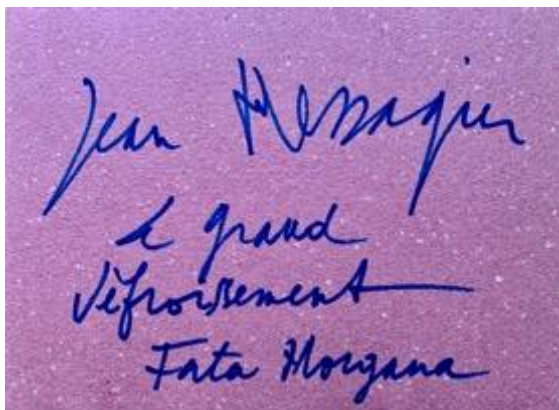 Jean Messagier
Le grand
défroissement
Fata Morgana